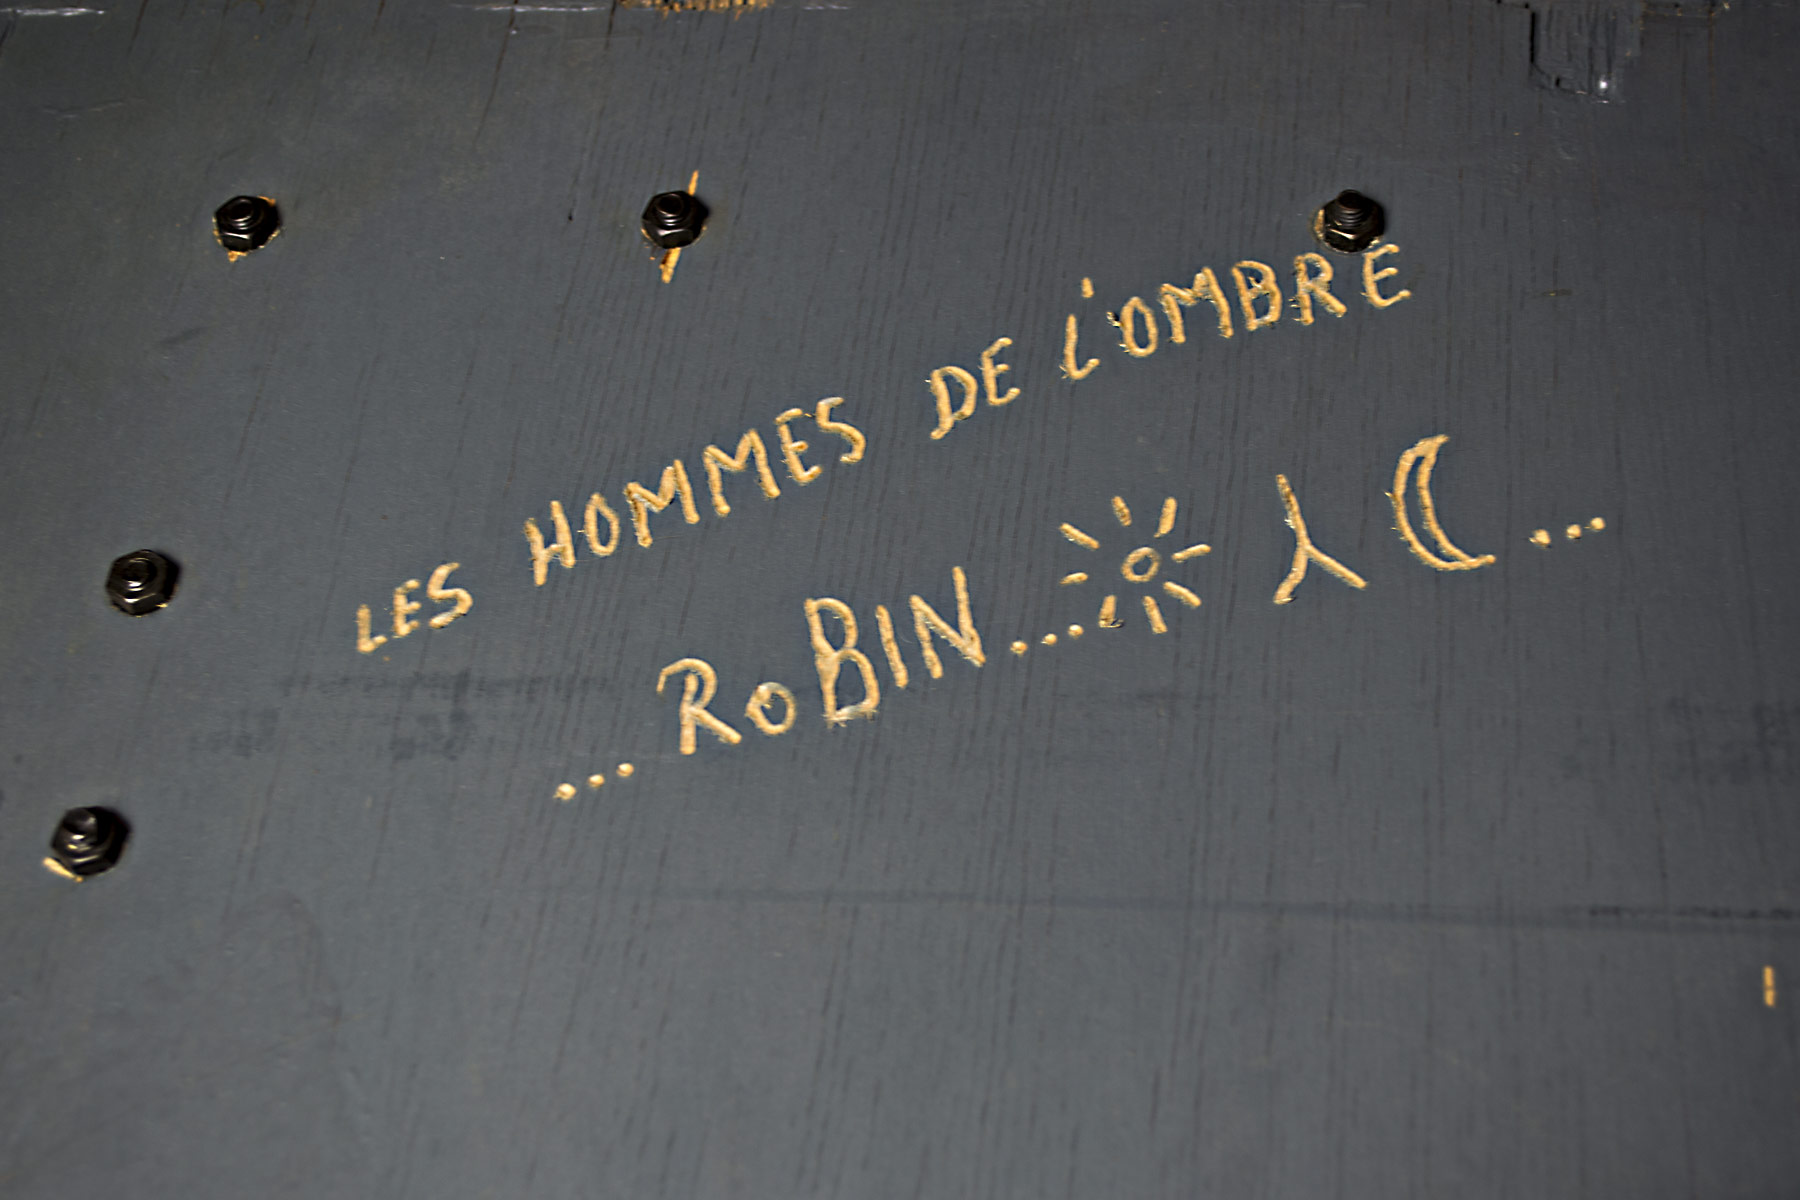 LES HOMMES DE L'OMBRE
...ROBIN...
...